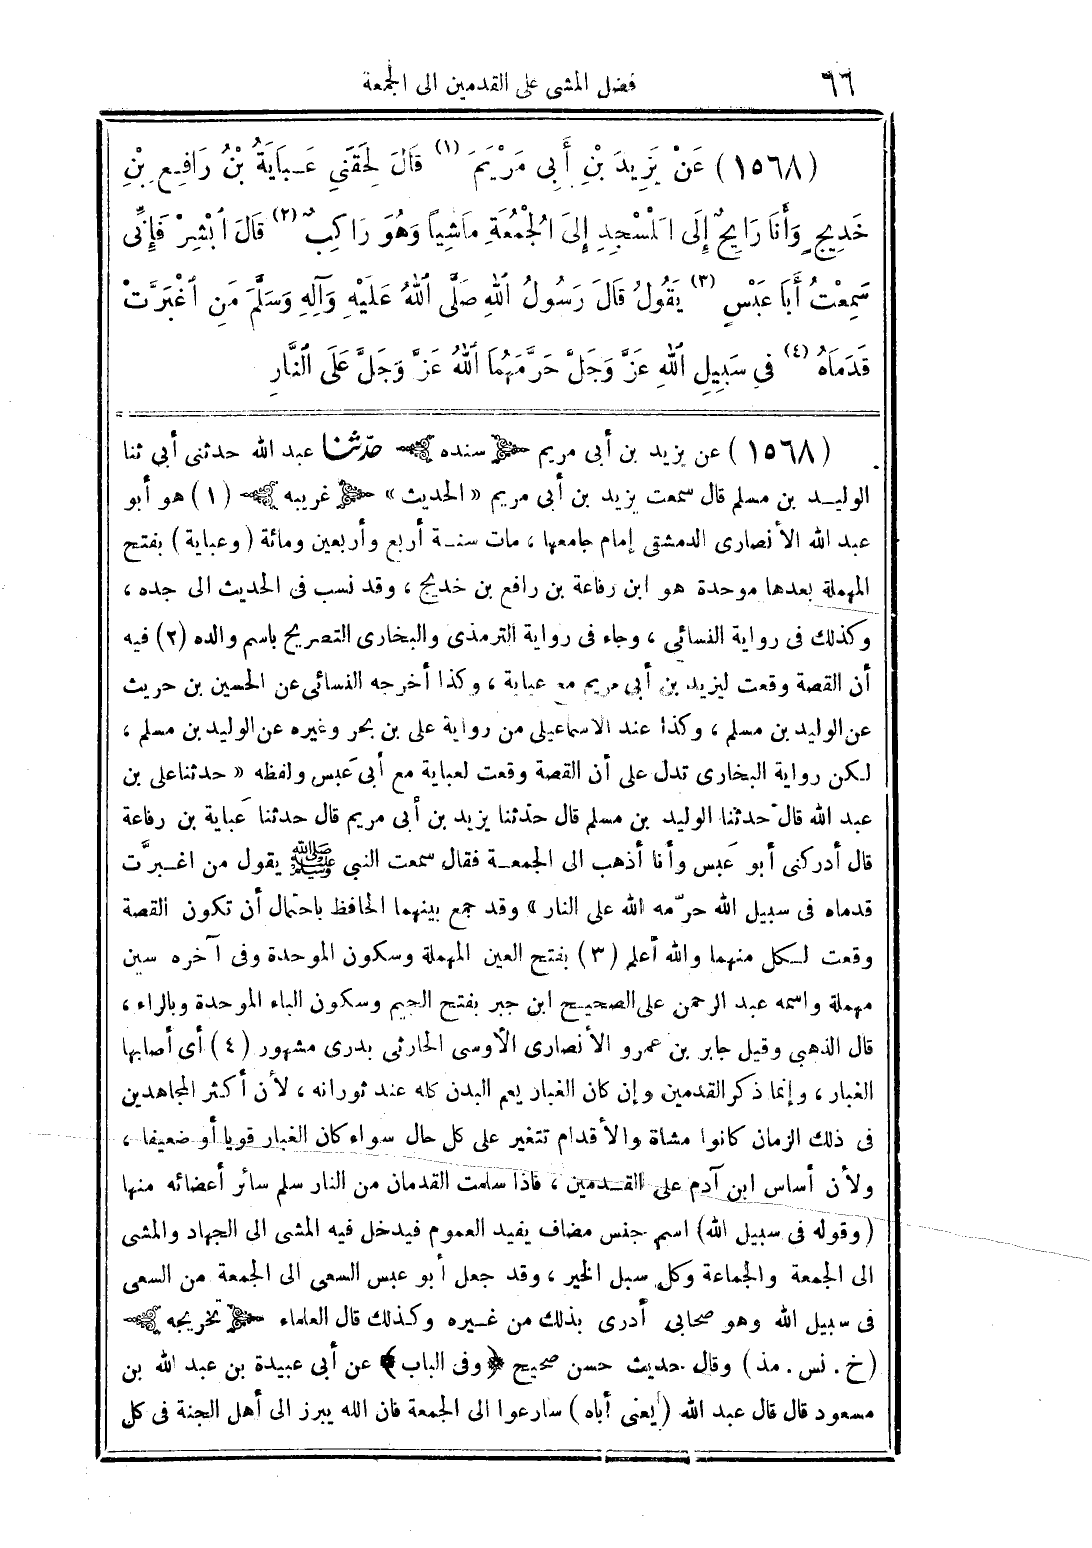 ٦٦ فضل المشى على القدمين الى الجمعة
(١٥٦٨) عَنْ يَزِيدَ بْنِ أَبِى مَرْيَمَ (١) قَالَ لَحِقَنِى عَبَايَةُ بْنُ رَافِعِ بْنِ
خَدِيجٍ وَأَنَا رَايِحٌ إِلَى الْمَسْجِدِ إِلَى الْجُمُعَةِ مَاشِياً وَهُوَ رَاكِبٌ (٢) قَالَ أَبْشِرْ فَإِنِّى
سَمِعْتُ أَبَا عَبْسٍ (٣) يَقُولُ قَالَ رَسُولُ اللهِ صَلَّى اللهُ عَلَيْهِ وَآلِهِ وَسَلَّمَ مَنِ اغْبَرَّتْ
قَدَمَاهُ (٤) فِى سَبِيلِ اللهِ عَزَّ وَجَلَّ حَرَّمَهُمَا اللهُ عَزَّ وَجَلَّ عَلَى النَّارِ
(١٥٦٨) عن يزيد بن أبى مريم ﴿سنده﴾ حدّثنا عبد الله حدثنى أبى ثنا
الوليد بن مسلم قال سمعت يزيد بن أبى مريم « الحديث » ﴿غريبه﴾ (١) هو أبو
عبد الله الأنصارى الدمشقى إمام جامعها ، مات سنة أربع وأربعين ومائة (وعباية) بفتح
المهملة بعدها موحدة هو ابن رفاعة بن رافع بن خديج ، وقد نسب فى الحديث الى جده ،
وكذلك فى رواية النسائي ، وجاء فى رواية الترمذى والبخارى التصريح باسم والده (٢) فيه
أن القصة وقعت ليزيد بن أبى مريم مع عباية ، وكذا أخرجه النسائى عن الحسين بن حريث
عن الوليد بن مسلم ، وكذا عند الاسماعيلى من رواية على بن بحر وغيره عن الوليد بن مسلم ،
لكن رواية البخارى تدل على أن القصة وقعت لعباية مع أبى عَبس ولفظه « حدثنا على بن
عبد الله قال حدثنا الوليد بن مسلم قال حدثنا يزيد بن أبى مريم قال حدثنا عَباية بن رفاعة
قال أدركنى أبو عَبس وأنا أذهب الى الجمعة فقال سمعت النبى ﷺ يقول من اغبرَّت
قدماه فى سبيل الله حرّمه الله على النار » وقد جمع بينهما الحافظ باحتمال أن تكون القصة
وقعت لكل منهما والله أعلم (٣) بفتح العين المهملة وسكون الموحدة وفى آخره سين
مهملة واسمه عبد الرحمن على الصحيح ابن جبر بفتح الجيم وسكون الباء الموحدة وبالراء ،
قال الذهبى وقيل جابر بن عمرو الأنصارى الأوسى الحارثى بدرى مشهور (٤) أى أصابها
الغبار ، وإنما ذكر القدمين وإن كان الغبار يعم البدن كله عند ثورانه ، لأن أكثر المجاهدين
فى ذلك الزمان كانوا مشاة والأقدام تتغير على كل حال سواء كان الغبار قويا أو ضعيفا ،
ولأن أساس ابن آدم على القدمين ، فاذا سلمت القدمان من النار سلم سائر أعضائه منها
(وقوله فى سبيل الله) اسم جنس مضاف يفيد العموم فيدخل فيه المشى الى الجهاد والمشى
الى الجمعة والجماعة وكل سبل الخير ، وقد جعل أبو عبس السعى الى الجمعة من السعى
فى سبيل الله وهو صحابى أدرى بذلك من غيره وكذلك قال العلماء ﴿تخريجه﴾
(خ . نس . مذ) وقال حديث حسن صحيح ﴿وفى الباب﴾ عن أبى عبيدة بن عبد الله بن
مسعود قال قال عبد الله (يعنى أباه) سارعوا الى الجمعة فان الله يبرز الى أهل الجنة فى كل